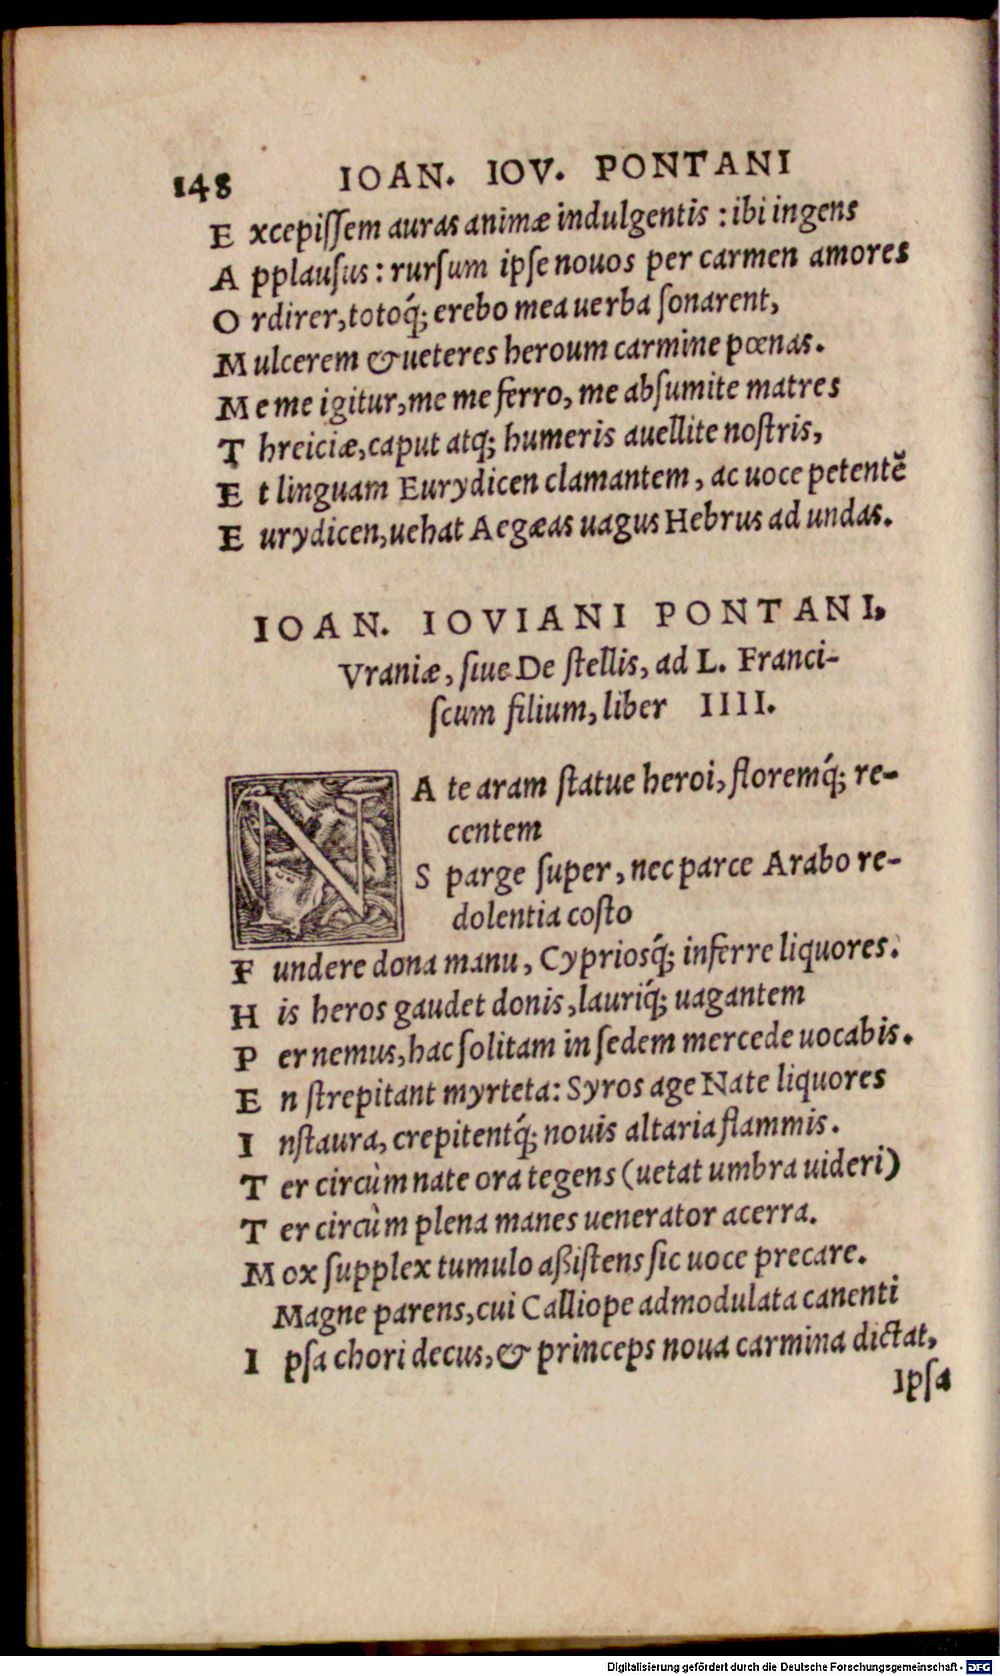 148 IOAN. IOV. PONTANI
E xcepiſſem auras animæ indulgentis : ibi ingens
A pplauſus : rurſum ipſe nouos per carmen amores
O rdirer, totoq́; erebo mea uerba ſonarent,
M ulcerem & ueteres heroum carmine pœnas.
M e me igitur, me me ferro, me abſumite matres
T hreiciæ, caput atq; humeris auellite noſtris,
E t linguam Eurydicen clamantem, ac uoce petentē
E urydicen, uehat Aegæas uagus Hebrus ad undas.
IOAN. IOVIANI PONTANI,
Vraniæ, ſiue De ſtellis, ad L. Franci-
ſcum filium, liber IIII.
NA te aram ſtatue heroi, floremq́; re-
centem
S parge ſuper, nec parce Arabo re-
dolentia coſto
F undere dona manu, Cypriosq́; inferre liquores.
H is heros gaudet donis, lauriq́; uagantem
P er nemus, hac ſolitam in ſedem mercede uocabis.
E n ſtrepitant myrteta: Syros age Nate liquores
I nſtaura, crepitentq́; nouis altaria flammis.
T er circùm nate ora tegens (uetat umbra uideri)
T er circùm plena manes uenerator acerra.
M ox ſupplex tumulo aßiſtens ſic uoce precare.
Magne parens, cui Calliope admodulata canenti
I pſa chori decus, & princeps noua carmina dictat,
Ipſa
Digitalisierung gefördert durch die Deutsche Forschungsgemeinschaft - DFG